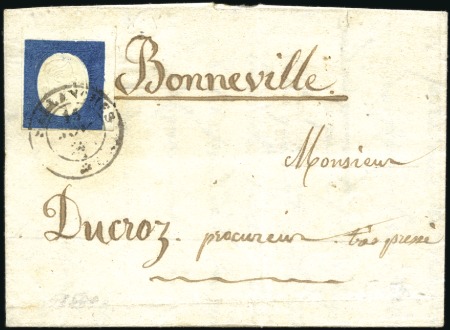 Bonneville.
Monsieur
Ducroz. procureur très pressé